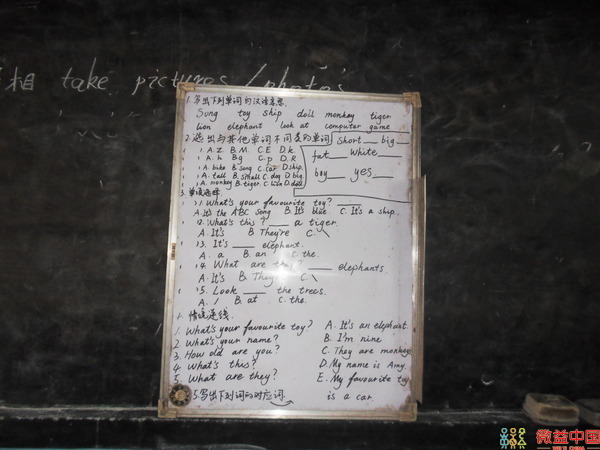 相 take pictures / photos
1.写出下列单词的汉语意思.
Song toy ship doll monkey tiger
lion elephant look at computer game
2.选出与其他单词不同类的单词
1 A. Z B. M C. E D. k
1 A. h B g C. p D. R
1 A. bike B song C. car D. ship
1 A. tall B. small C. dog D. big
1 A. monkey B. tiger C. lion D.
short big
fat White
boy yes
3.单项选择
1. What's your favourite toy?
A. It's the ABC song B. It's blue C. It's a ship.
2. What's this? a tiger.
A. It's B They're C. \
3. It's elephant.
A. a B. an the.
4. What are they? elephants.
A. It's B. They're C \
5. Look the trees.
A. / B. at C. the.
4. 情境连线.
1. What's your favourite toy? A. It's an elephant.
2. What's your name? B. I'm nine
3. How old are you? C. They are monkeys
4. What's this? D. My name is Amy.
5. What are they? E. My favourite toy
is a car.
5.写出下列词的对应词
微益中国